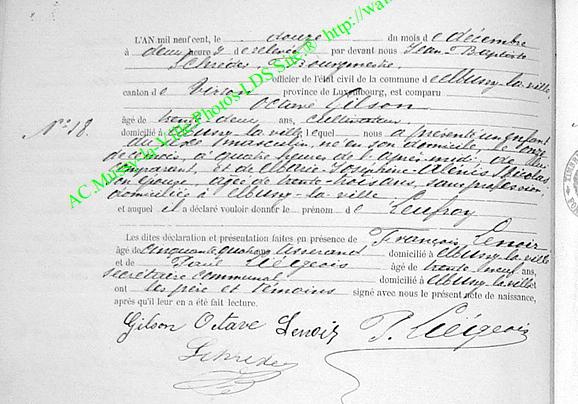 L'AN mil neuf cent, le douze du mois de décembre
à deux heures de relevée par devant nous Jean Baptiste
Schreder, Bourgmestre
officier de l'état civil de la commune de Mussy-la-ville
canton de Virton province de Luxembourg, est comparu
Octave Gilson
N° 18.
âgé de trente-deux ans,
domicilié à Mussy-la-ville lequel nous a présenté un enfant
du sexe masculin, né en son domicile, le onze
de ce mois, à quatre heures de l'après-midi, de lui
comparant, et de Marie Joséphine Nicolas
son épouse, âgée de trente-trois ans, sans profession
domiciliée à Mussy-la-ville
et auquel il a déclaré vouloir donner le prénom de Leufroy
Les dites déclaration et présentation faites en présence de François Lenoir
âgé de cinquante quatre ans domicilié à Mussy-la-ville
et de Paul Liégeois âgé de trente neuf ans,
secrétaire communal domicilié à Mussy-la-ville
ont les père et témoins signé avec nous le présent acte de naissance,
après qu'il leur en a été fait lecture.
Gilson Octave Lenoir P. Liégeois
Schreder
AC.Mussy-la-Ville-Photos-LDS Site:® http://wa